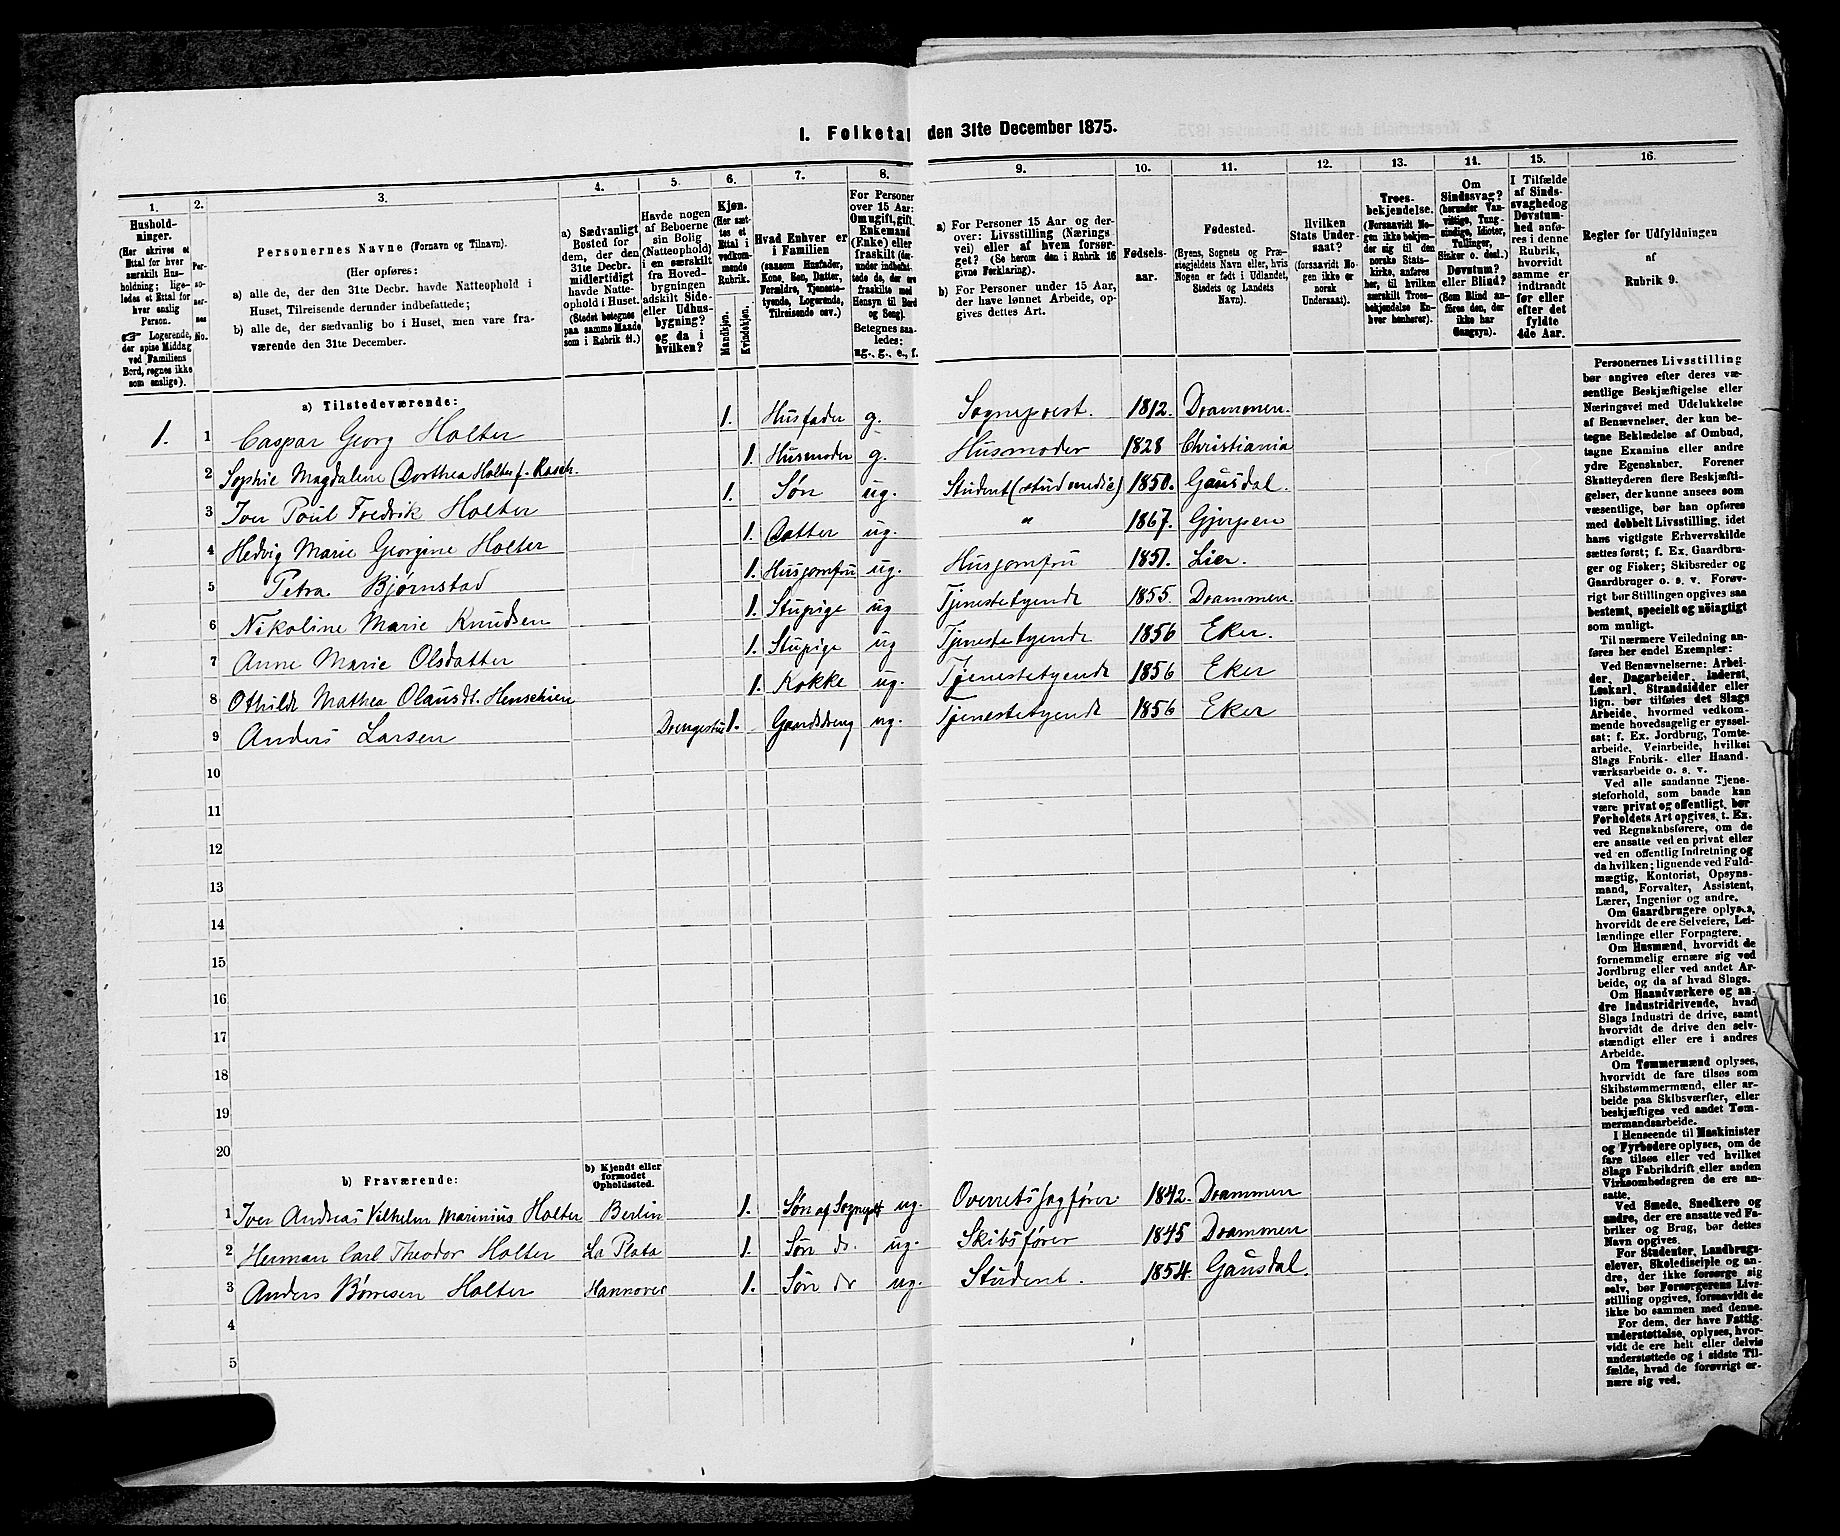 I. Folketal den 31te December 1875.
1. 2. 3. 4. 5. 6. 7. 8. 9. 10. 11. 12. 13. 14. 15. 16.
Hushold-
ninger.
(Her skrives et
Ettal for hver
særskilt Hus-
holdning; lige-
ledes et Ettal for
hver enslig
Person.
☞ Logerende,
der spise Middag
ved Familiens
Bord, regnes ikke
som enslige).
Per-
so-
ner-
nes
No.
Personernes Navne (Fornavn og Tilnavn).
(Her opføres:
a) alle de, der den 31te Decbr. havde Natteophold i
Huset, Tilreisende derunder indbefattede;
b) alle de, der sædvanlig bo i Huset, men vare fra-
værende den 31te December.
a) Sædvanligt
Bosted for
dem, der den
31te Decbr.
midlertidigt
havde Natte-
ophold i Huset.
(Stedet betegnes
paa samme Maade
som i Rubrik 11.)
Havde nogen
af Beboerne
sin Bolig
(Natteophold)
i en særskilt
fra Hoved-
bygningen
adskilt Side-
eller Udhus-
bygning?
og da i
hvilken?
Kjøn.
(Her sæt-
tes et
Ettal i
vedkom-
mende
Rubrik.
Mandkjøn.
Kvindekjøn.
Hvad Enhver er
i Familien
(saasom Husfader,
Kone, Søn, Datter,
Forældre, Tjeneste-
tyende, Logerende,
Tilreisende osv.)
For Personer
over 15 Aar:
Om ugift, gift,
Enkemand
(Enke) eller
fraskilt (der-
under indbefat-
tede da, der ere
fraskilte med
Hensyn til Bord
og Seng).
Betegnes saa-
ledes:
ug., g., e., f.
a) For Personer 15 Aar og der-
over: Livsstilling (Nærings
vei) eller af hvem forsør-
get? (Se herom den i Rubrik 16
givne Forklaring).
b) For Personer under 15 Aar,
der have lønnet Arbeide, op-
gives dettes Art.
Fødsels-
aar.
Fødested.
(Byens, Sognets og Præ-
stegjeldets Navn eller, hvis
Nogen er født i Udlandet,
Stedets og Landets
Navn).
Hvilken
Stats Under-
saat?
(forsaavidt No-
gen ikke er
norsk
Undersaat).
Troes-
bekjendelse.
(Forsaavidt No-
gen ikke bekjen-
der sig til den
norske Stats-
kirke, anføres
her, til hvilken
særskilt Troes-
bekjendelse En-
hver henhører).
Om
Sindssvag?
(herunder Van-
vittige, Tung-
sindige, Idioter,
Tullinger,
Sinker o. desl.)
Døvstum?
eller Blind?
(Som Blind an-
føres den, der
ikke har
Gangsyn).
I Tilfælde
af Sinds-
svaghed og
Døvstum-
hed anfø-
res i denne
Rubrik,
hvorvidt
samme er
indtraadt
før eller
efter det
fyldte
4de Aar.
Regler for Udfyldningen
af
Rubrik 9.
a) Tilstedeværende:
1. 1 Caspar Georg Holter 1. Husfader g. Sogneprest. 1812. Drammen.
2 Sophie Magdalene Dorthea Holter f. Rasch. 1. Husmoder g. Husmoder 1828 Christiania
3 Iver Poul Fredrik Holter 1. Søn ug. Student (stud medic) 1850. Gausdal.
4 Hedvig Marie Georgine Holter 1. Datter ug. " 1867. Gjerpen
5 Petra Bjørnstad 1. Husjomfru ug. Husjomfru 1851. Lier.
6 Nikoline Marie Knudsen 1. Stupige ug Tjenestetyende 1855. Drammen.
7 Anne Marie Olsdatter 1. Stupige ug Tjenestetyende 1856 Eker.
8 Othilde Mathea Olausdt. Henschien 1. Kokke ug. Tjenestetyende 1856 Eker
9 Anders Larsen Drengestue 1. Gaardsdreng ug. Tjenestetyende 1856 Eker
10
11
12
13
14
15
16
17
18
19
20
b) Fraværende:
b) Kjendt eller
formodet
Opholdssted.
1 Iver Andreas Vilhelm Marinius Holter Berlin 1. Søn af Sogneprt ug. Overretssagfører 1842. Drammen
2 Herman Carl Theodor Holter La Plata 1. Søn do. ug. Skibsfører 1845 Drammen
3 Anders Børresen Holter Hannover 1. Søn do ug. Student. 1854. Gausdal.
4
5
Personernes Livsstilling
bør angives efter deres væ-
sentlige Beskjæftigelse eller
Næringsvei med Udelukkelse
af Benævnelser, der kun be-
tegne Beklædelse af Ombud,
tagne Examina eller andre
ydre Egenskaber. Forener
Skatteyderen flere Beskjæfti-
gelser, der kunne ansees som
væsentlige, bør han opføres
med dobbelt Livsstilling, idet
hans vigtigste Erhvervskilde
sættes først; f. Ex. Gaardbru-
ger og Fisker; Skibsreder og
Gaardbruger o. s. v. Forøv-
rigt bør Stillingen opgives saa
bestemt, specielt og nøiagtigt
som muligt.
Til nærmere Veiledning an-
føres her endel Exempler:
Ved Benævnelserne: Arbei-
der, Dagarbeider, Inderst,
Løskarl, Strandsidder eller
lign. bør tilføies det Slags
Arbeide, hvormed vedkom-
mende hovedsagelig er syssel-
sat; f. Ex. Jordbrug, Tomte-
arbeide, Veiarbeide, hvilket
Slags Fabrik- eller Haand-
værksarbeide o. s. v.
Ved alle saadanne Tjene-
steforhold, som baade kan
være privat og offentligt, bør
Forholdets Art opgives, t. Ex.
ved Regnskabsførere, om de
ere ansatte ved en privat eller
ved en offentlig Indretning og
da hvilken; lignende ved Fuld-
mægtig, Kontorist, Opsyns-
mand, Forvalter, Assistent,
Lærer, Ingeniør og andre.
Om Gaardbrugere oplyses,
hvorvidt de ere Selveiere, Lei-
lændinge eller Forpagtere.
Om Husmænd, hvorvidt de
fornemmelig ernære sig ved
Jordbrug eller ved andet Ar-
beide, og da af hvad Slags.
Om Haandværkere og an-
dre Industridrivende, hvad
Slags Industri de drive, samt
hvorvidt de drive den selv-
stændigt eller ere i andres
Arbeide.
Om Tømmermænd oplyses,
hvorvidt de fare tilsøs som
Skibstømmermænd, eller ar-
beide paa Skibsværfter, eller
beskjæftiges ved andet Tøm-
mermandsarbeide.
I Henseende til Maskinister
og Fyrbødere oplyses, om de
fare tilsøs eller ved hvilket
Slags Fabrikdrift eller anden
Virksomhedsgren de ere an-
satte.
Ved Smede, Snedkere og
andre, der ere ansatte ved Fa-
briker og Brug, bør dettes
Navn opgives.
For Studenter, Landbrugs-
elever, Skoledisciple og an-
dre, der ikke forsørge sig
selv, bør Forsørgerens Livs-
stilling opgives, forsaavidt de
ikke bo sammen med denne.
For dem, der have Fattig-
understøttelse, oplyses, hvor-
vidt de ere helt eller delvis
understøttede og i sidste Til-
fælde, hvad de forøvrigt er-
nære sig ved.